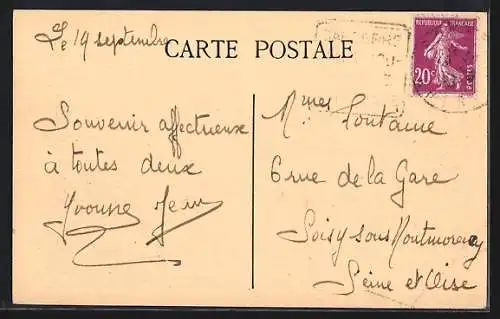 Le 19 septembre
CARTE POSTALE
REPUBLIQUE FRANÇAISE
20c
POSTES
Souvenir affectueux
à toutes deux
Yvonne Jean
Mmes Fontaine
6 rue de la Gare
Soisy sous Montmorency
Seine et Oise